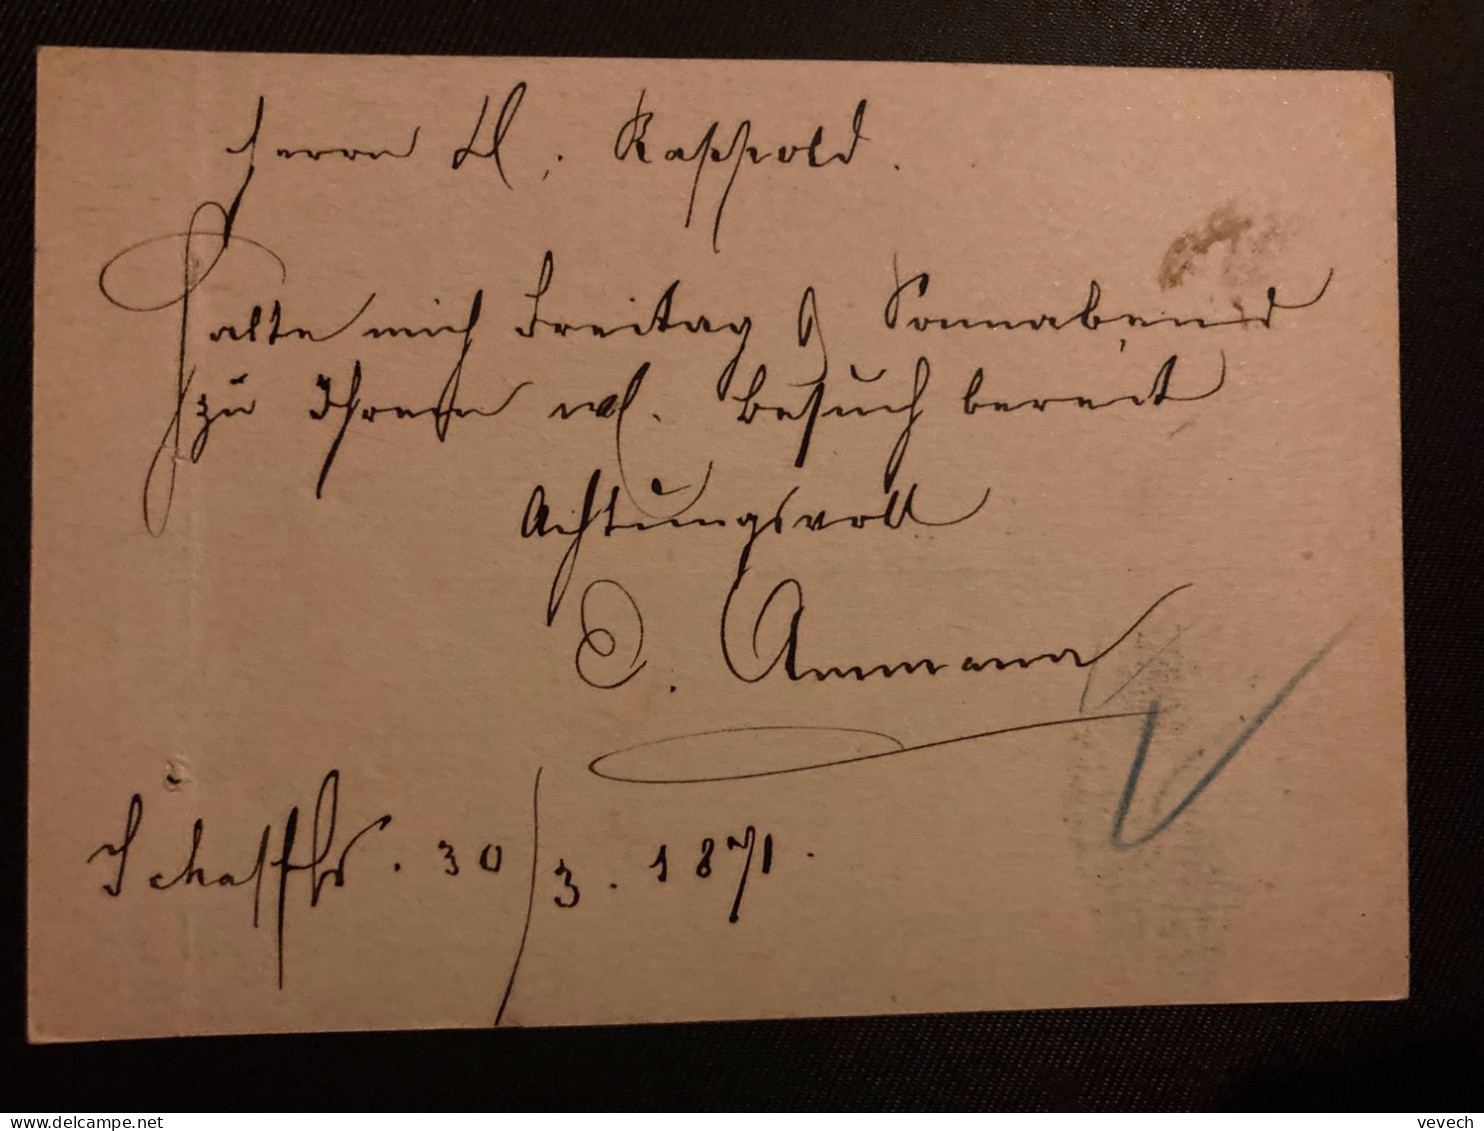 Herrn H. Rappold.
Halte mich Freitag & Sonnabend
zu Ihrem wl. Besuch bereit
Achtungsvoll
O. Ammann
Schaffhs. 30/3. 1871.
vevech